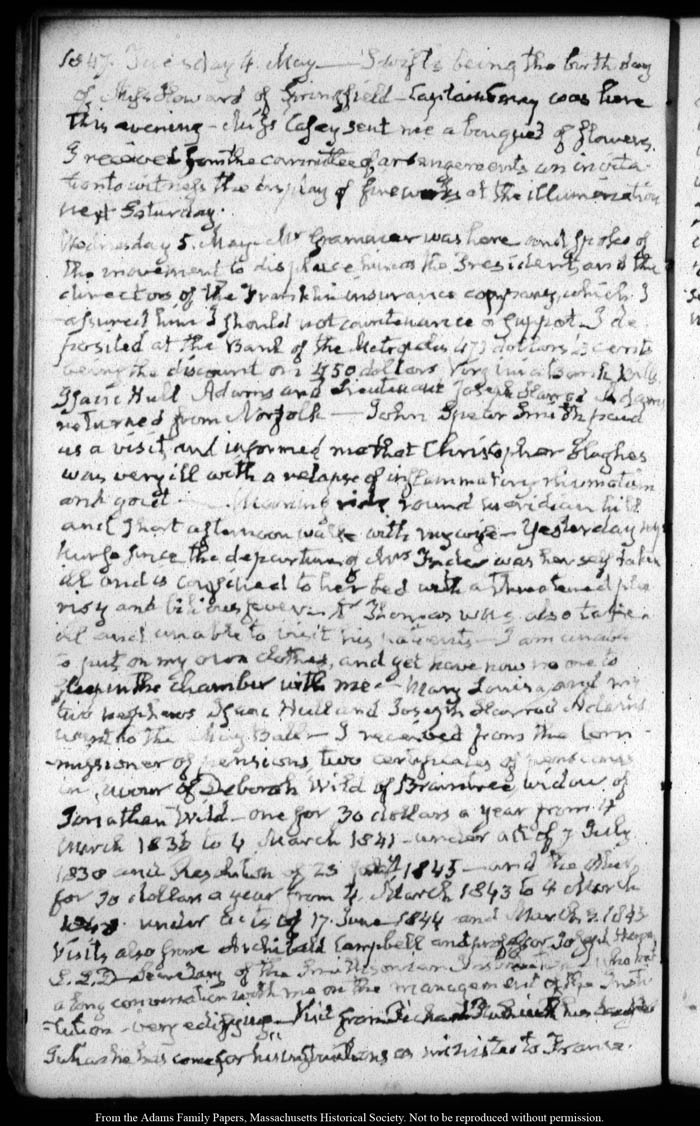 1847. Tuesday 4. May — Swifts being the birth day
of Miss Howard of Springfield — Captain was here
this evening — Miss Casey sent me a bouquet of flowers.
I received from the committee of arrangements an invita-
tion to witness the display of fireworks at the illumination
next Saturday.
Wednesday 5. May — Mr was here and spoke of
the movement to displace him as the President and the
directors of the Franklin insurance company, which I
assured him I should not countenance or support — I de-
posited at the Bank of the Metropolis 47 dollars cents
being the discount on 450 dollars Virginia
Isaac Hull Adams and Lieutenant Joseph Harrod Adams
returned from Norfolk — John Spear Smith paid
us a visit, and informed me that Christopher Hughes
was very ill with a relapse of inflammatory rheumatism
and gout — Morning ride round meridian hill
and short afternoon walk with my wife — Yesterday my
nurse since the departure of Mrs was herself taken
ill and is confined to her bed with a threatened pleu
risy and bilious fever — Dr Thomas was also taken
ill and unable to visit his patients — I am unable
to put on my own clothes, and yet have now no one to
sleep in the chamber with me — Mary Louisa, and my
two nephews Isaac Hull and Joseph Harrod Adams
went to the May Ball — I received from the Com-
missioner of pensions two certificates of pensions
in favour of Deborah Wild of Braintree widow of
Jonathan Wild — one for 30 dollars a year from 4
March 1836 to 4 March 1841 — under act of 7 July
1838 and Resolution of 23 1845 — and the other
for 30 dollars a year from 4. March 1843 to 4 March
under acts of 17. June 1844 and March 3. 1843
Visits also from Archibald Campbell and professor Joseph Henry
L.L.D — Secretary of the Smithsonian Institution, who had
a long conversation with me on the management of the Insti-
tution — very edifying — Visit from Richard Rush with his daughter
Julia — he has come for his instructions as minister to France.
From the Adams Family Papers, Massachusetts Historical Society. Not to be reproduced without permission.